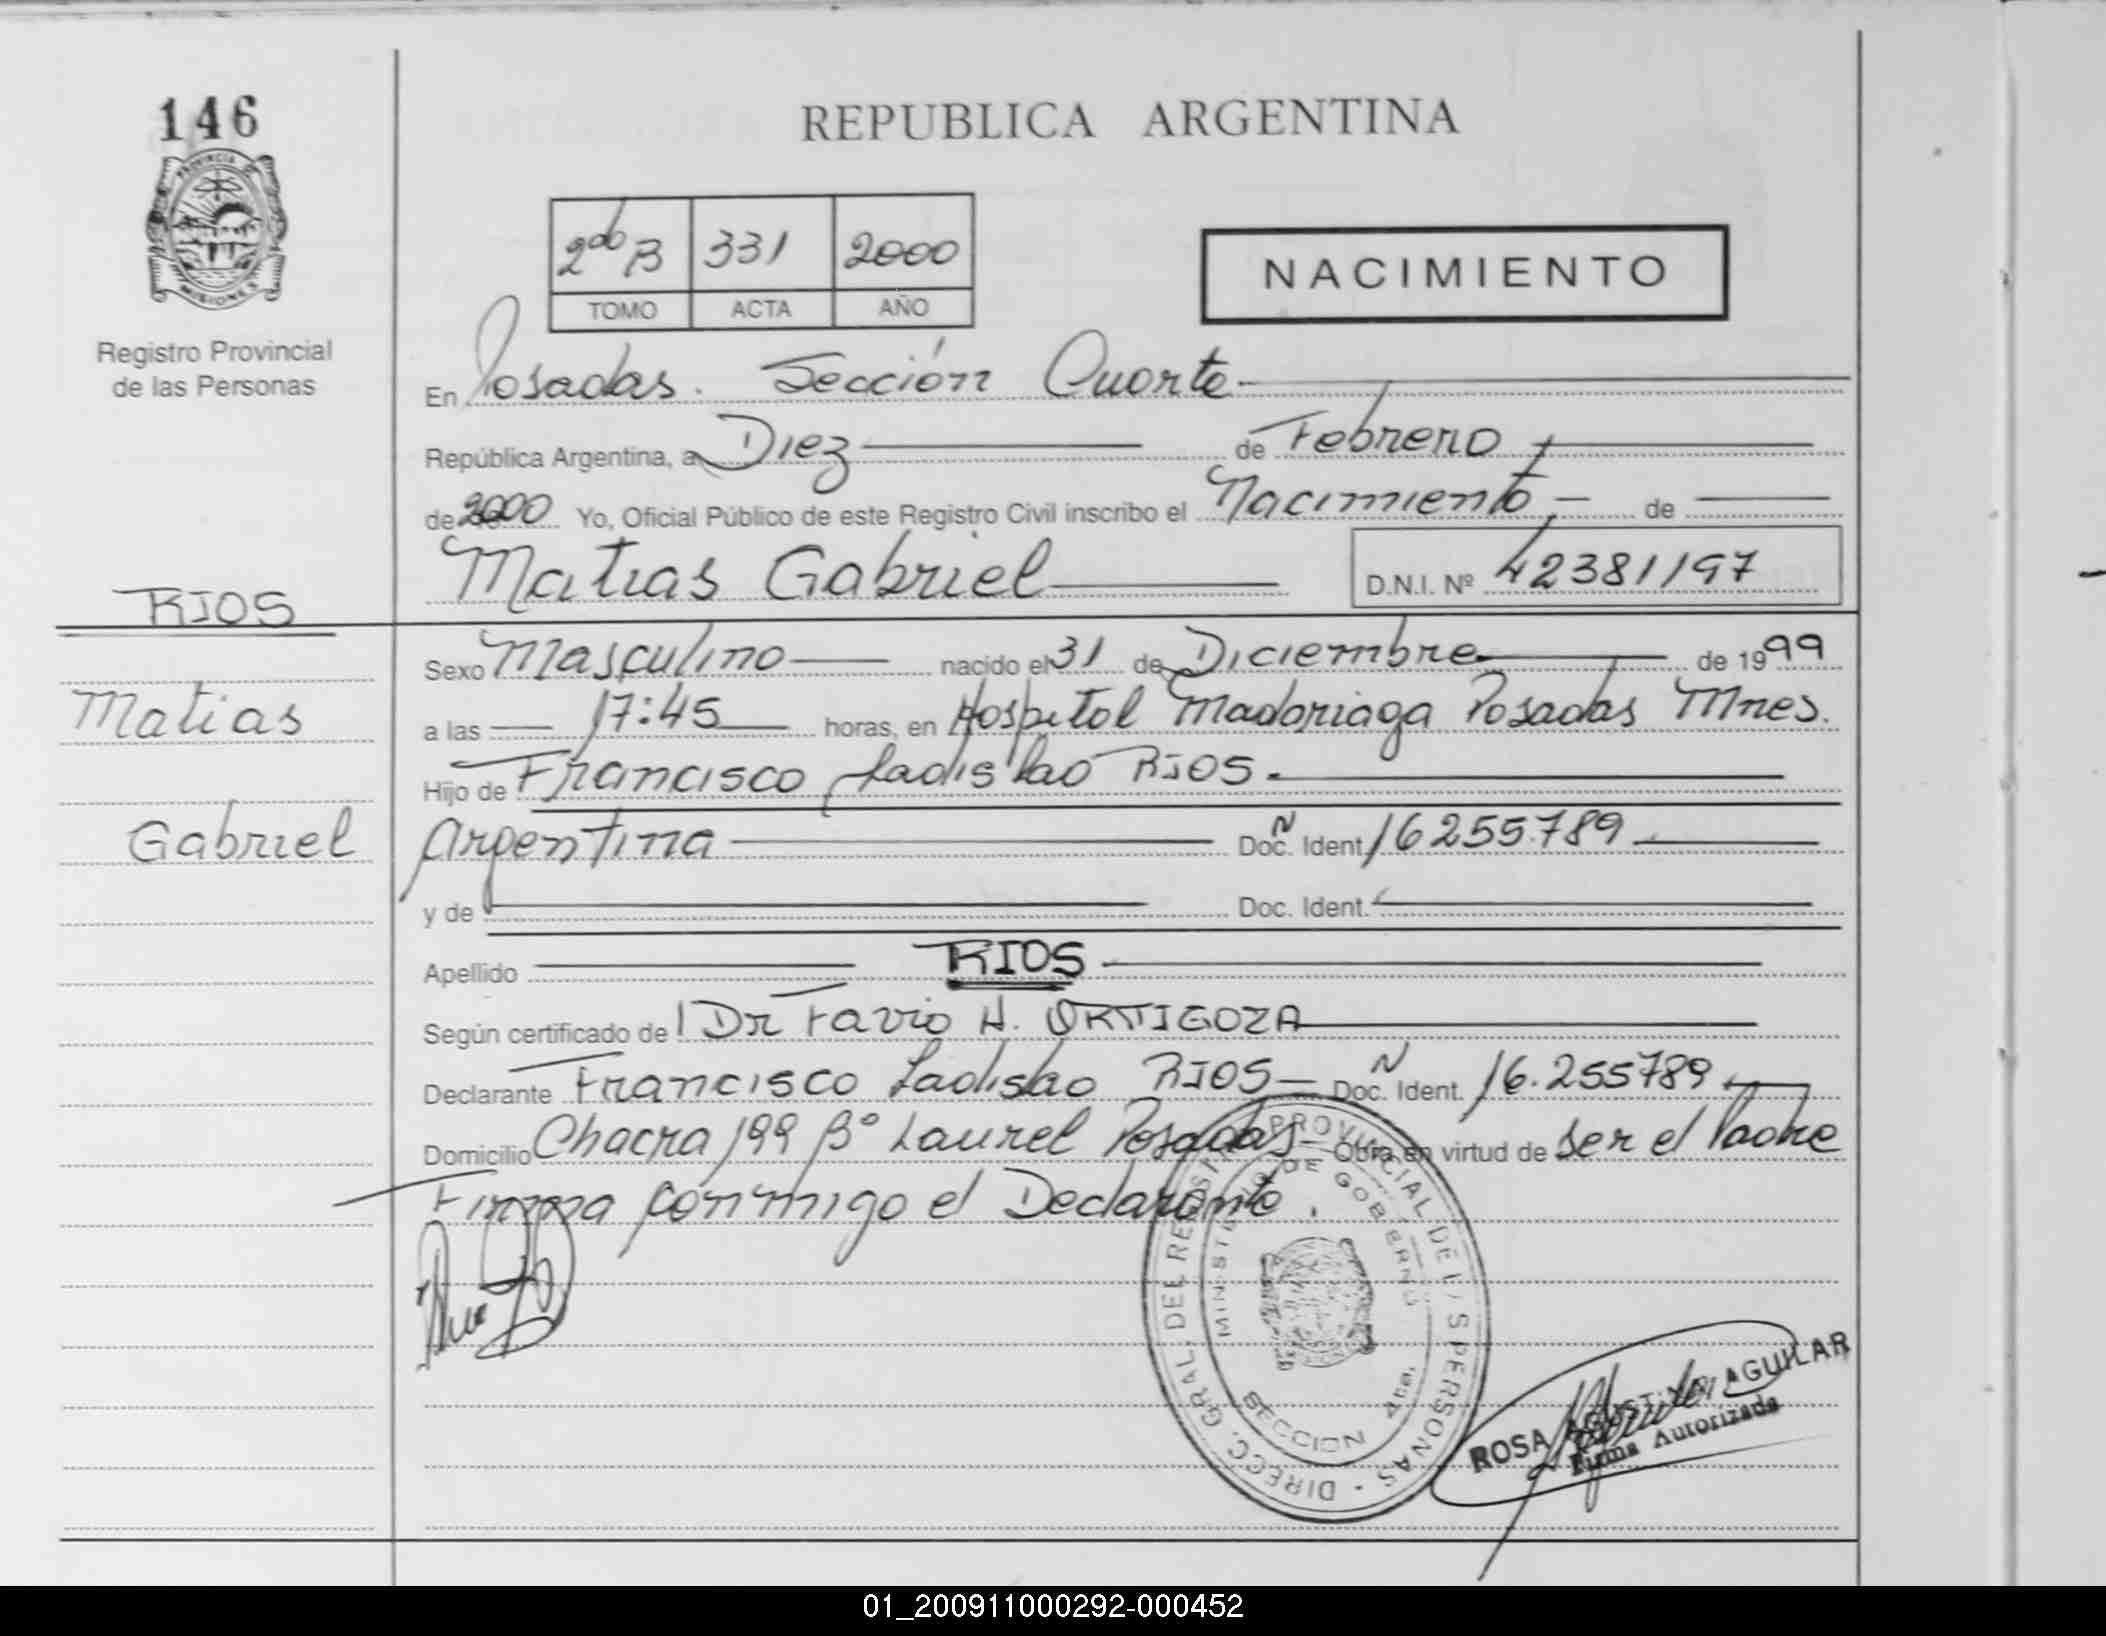 146
PROVINCIA DE
MISIONES
Registro Provincial
de las Personas
REPUBLICA ARGENTINA
2do B 331 2000
TOMO ACTA AÑO
NACIMIENTO
En Posadas. Sección Cuarta
República Argentina, a Diez de Febrero
de 2000 Yo, Oficial Público de este Registro Civil inscribo el Nacimiento de
Matias Gabriel D.N.I. Nº 42381197
RIOS
Matias
Gabriel
Sexo Masculino nacido el 31 de Diciembre de 1999
a las 17:45 horas, en Hospital Madariaga Posadas Mnes.
Hijo de Francisco Ladislao RIOS.
Argentina Doc. N Ident. 16255789
y de Doc. Ident.
Apellido RIOS
Según certificado de Dr Favio H. ORTIGOZA
Declarante Francisco Ladislao RIOS Doc. N Ident. 16.255789
Domicilio Chacra 199 Bº Laurel Posadas Obra en virtud de Ser el Padre
Firma conmigo el Declarante.
DIRECC. GRAL. DEL REGISTRO PROVINCIAL DE L S PERSONAS
MINISTERIO DE GOBIERNO
SECCION 4ta.
ROSA AGUSTINA AGUILAR
Firma Autorizada
01_200911000292-000452